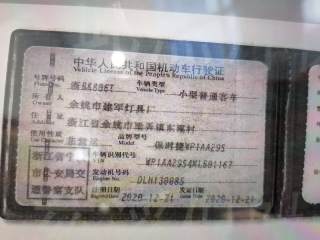 中华人民共和国机动车行驶证
Vehicle License of the People's Republic of China
号牌号码 浙BK896T 车辆类型 Vehicle Type 小型普通客车
所有人 余姚市建军灯具厂
住址 浙江省余姚市梁弄镇东溪村
使用性质 非营运 品牌型号 保时捷WP1AA295
浙江省宁波 车辆识别代号 VIN WP1AA2954XLB81167
市公安局交 发动机号码 Engine No. DLH130885
通警察支队 注册日期 2020-12-21 发证日期 2020-12-21